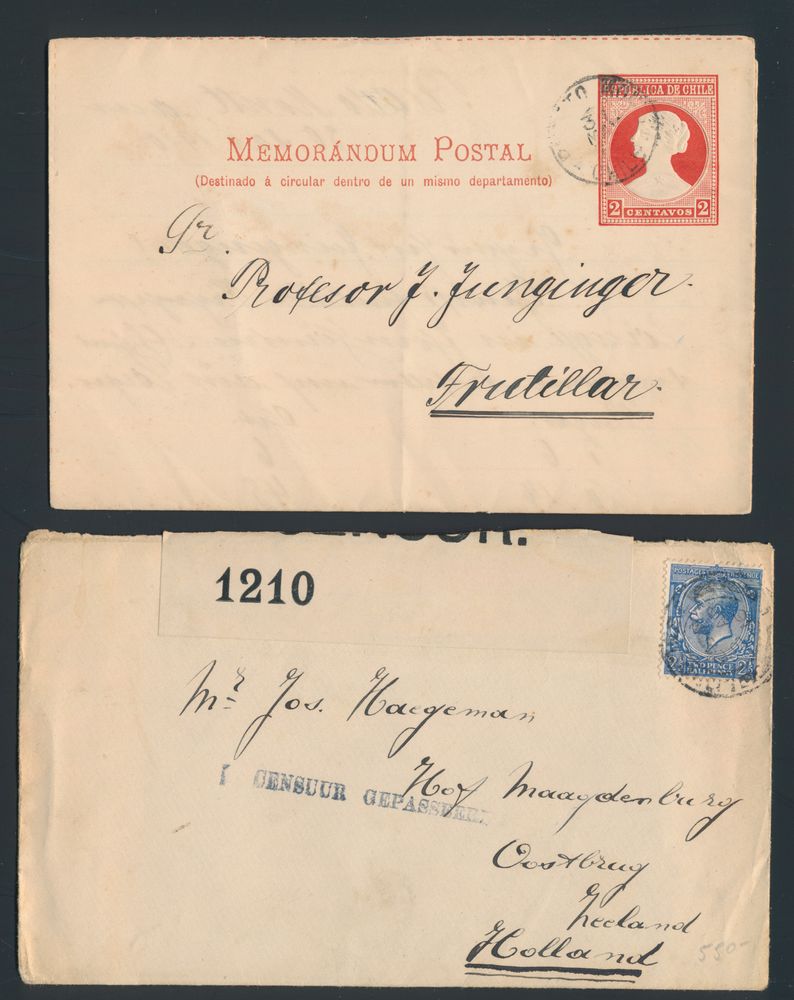 REPÚBLICA DE CHILE
MEMORÁNDUM POSTAL
(Destinado á circular dentro de un mismo departamento)
2 CENTAVOS 2
Sr.
Profesor J. Junginger.
Frutillar.
CENSOR.
1210
POSTAGE REVENUE
2½ TWO PENCE HALFPENNY 2½
Mr Jos. Haegeman
CENSUUR GEPASSEERD
Hof Maagdenburg
Oostbrug
Zeeland
Holland
550-